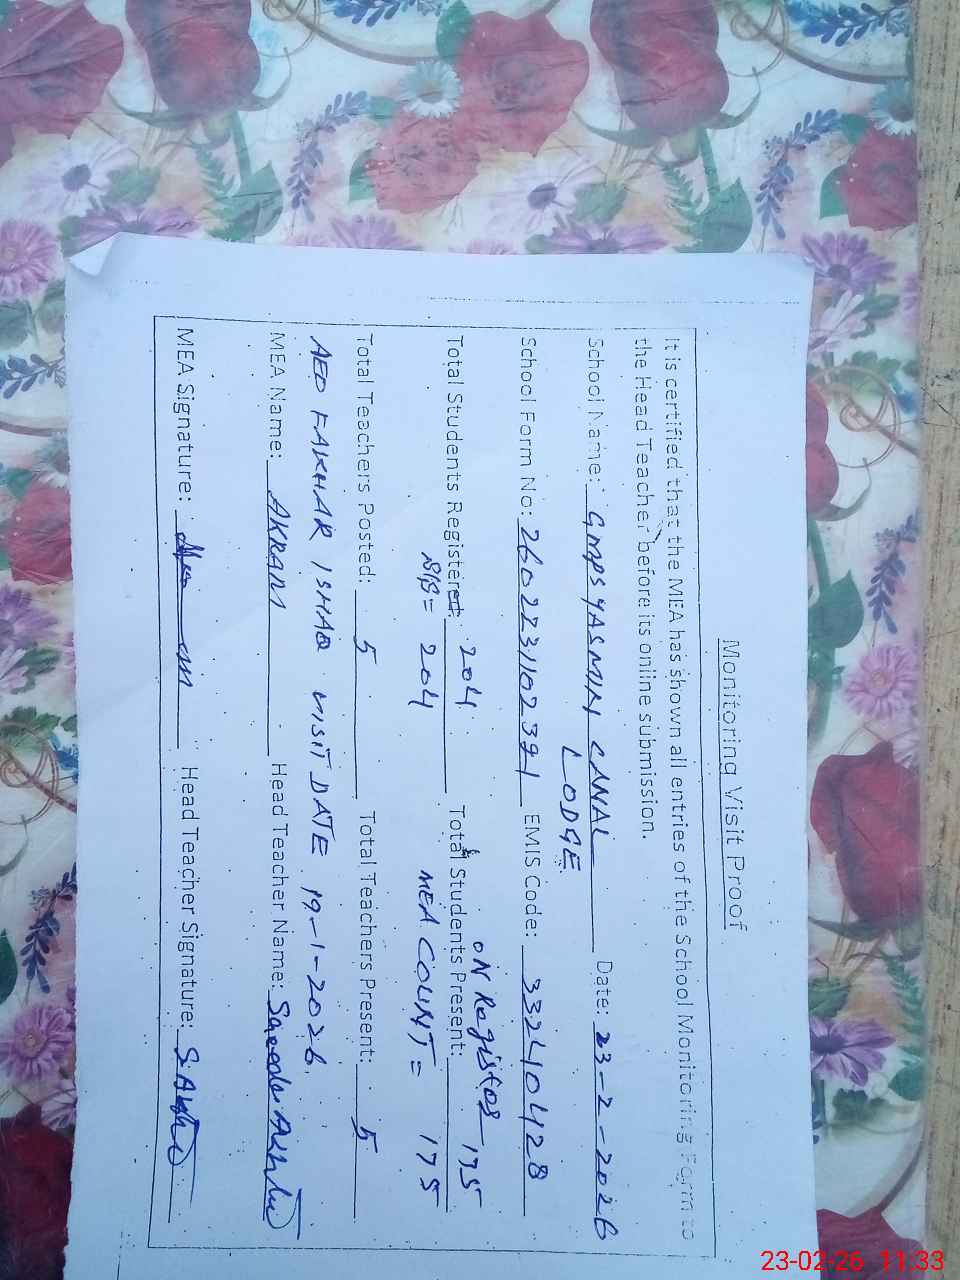 Monitoring Visit Proof
It is certified that the MEA has shown all entries of the School Monitoring Form to
the Head Teacher before its online submission.
School Name: GMPS YASMIN CANAL Date: 23-2-2026
LODGE
School Form No: 26022331102391 EMIS Code: 33240428
ON Register 175
Total Students Registered: 204 Total Students Present:
SIS= 204 MEA COUNT = 175
Total Teachers Posted: 5 Total Teachers Present: 5
AEO FAKHAR ISHAQ VISIT DATE 19-1-2026.
MEA Name: AKRAM Head Teacher Name: Saeeda
MEA Signature: Head Teacher Signature:
23-02-26 11:33